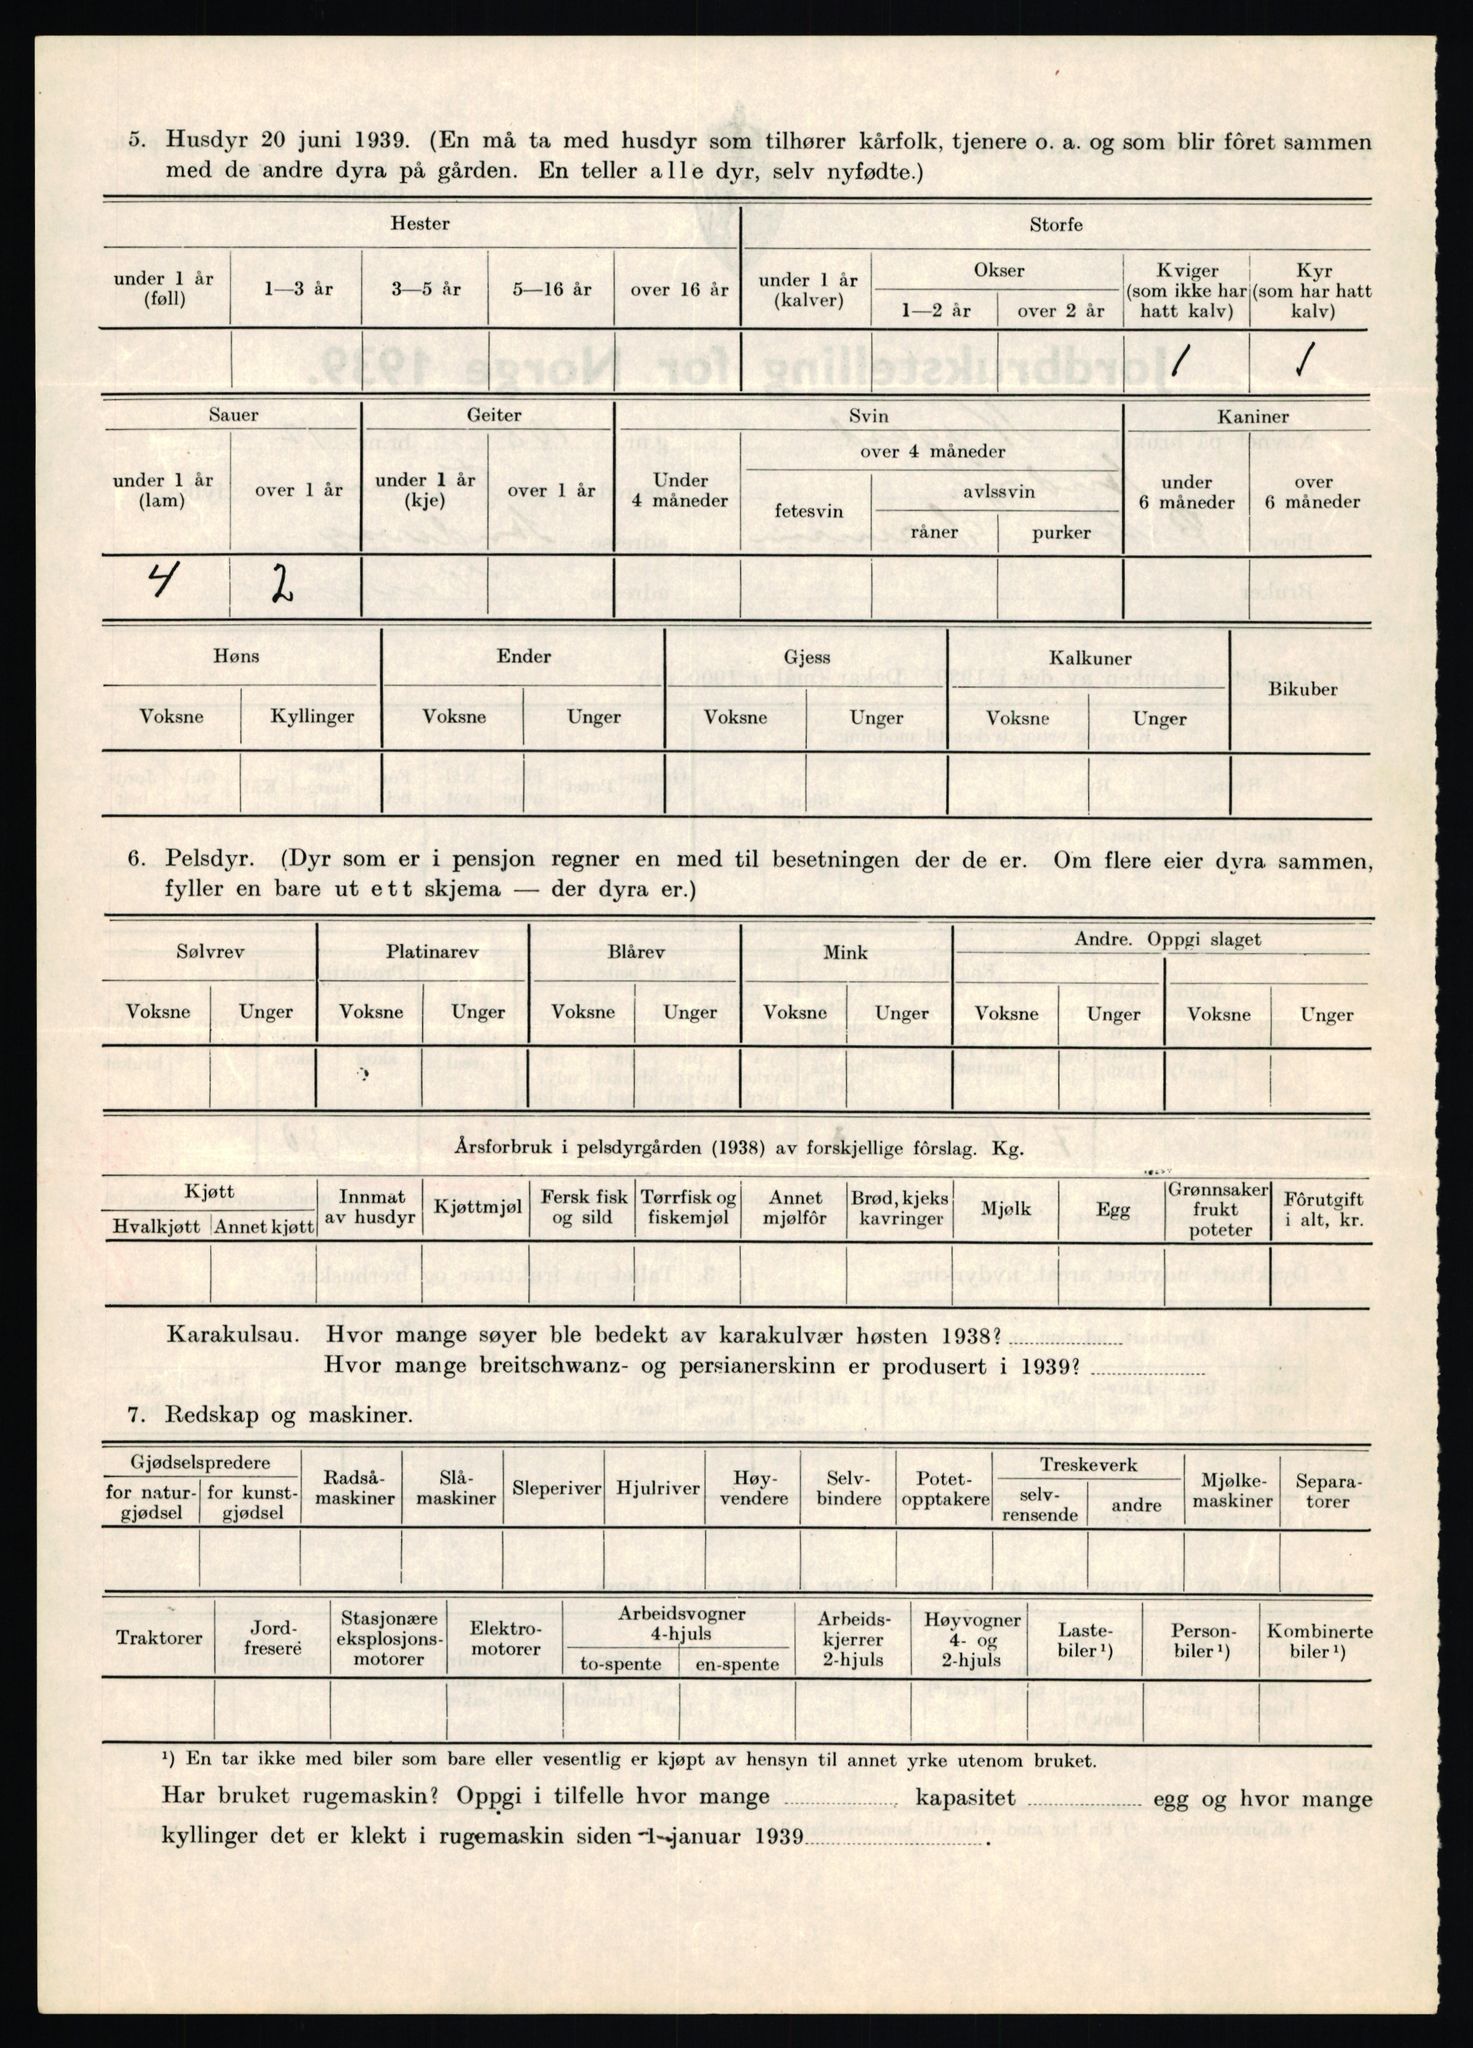 5. Husdyr 20 juni 1939. (En må ta med husdyr som tilhører kårfolk, tjenere o. a. og som blir fôret sammen
med de andre dyra på gården. En teller alle dyr, selv nyfødte.)
Hester Storfe
under 1 år (føll) 1—3 år 3—5 år 5—16 år over 16 år under 1 år (kalver) Okser 1—2 år over 2 år Kviger (som ikke har hatt kalv) Kyr (som har hatt kalv)
1 1
Sauer Geiter Svin Kaniner
under 1 år (lam) over 1 år under 1 år (kje) over 1 år Under 4 måneder over 4 måneder fetesvin avlssvin råner purker under 6 måneder over 6 måneder
4 2
Høns Ender Gjess Kalkuner Bikuber
Voksne Kyllinger Voksne Unger Voksne Unger Voksne Unger
6. Pelsdyr. (Dyr som er i pensjon regner en med til besetningen der de er. Om flere eier dyra sammen,
fyller en bare ut ett skjema — der dyra er.)
Sølvrev Platinarev Blårev Mink Andre. Oppgi slaget
Voksne Unger Voksne Unger Voksne Unger Voksne Unger Voksne Unger Voksne Unger
Årsforbruk i pelsdyrgården (1938) av forskjellige fôrslag. Kg.
Kjøtt Hvalkjøtt Annet kjøtt Innmat av husdyr Kjøttmjøl Fersk fisk og sild Tørrfisk og fiskemjøl Annet mjølfôr Brød, kjeks kavringer Mjølk Egg Grønnsaker frukt poteter Fôrutgift i alt, kr.
Karakulsau. Hvor mange søyer ble bedekt av karakulvær høsten 1938?
Hvor mange breitschwanz- og persianerskinn er produsert i 1939?
7. Redskap og maskiner.
Gjødselspredere for natur-gjødsel for kunst-gjødsel Radså-maskiner Slå-maskiner Sleperiver Hjulriver Høy-vendere Selv-bindere Potet-opptakere Treskeverk selv-rensende andre Mjølke-maskiner Separa-torer
Traktorer Jord-fresere Stasjonære eksplosjons-motorer Elektro-motorer Arbeidsvogner 4-hjuls to-spente en-spente Arbeids-kjerrer 2-hjuls Høyvogner 4- og 2-hjuls Laste-biler¹) Person-biler¹) Kombinerte biler¹)
¹) En tar ikke med biler som bare eller vesentlig er kjøpt av hensyn til annet yrke utenom bruket.
Har bruket rugemaskin? Oppgi i tilfelle hvor mange kapasitet egg og hvor mange
kyllinger det er klekt i rugemaskin siden 1 januar 1939.